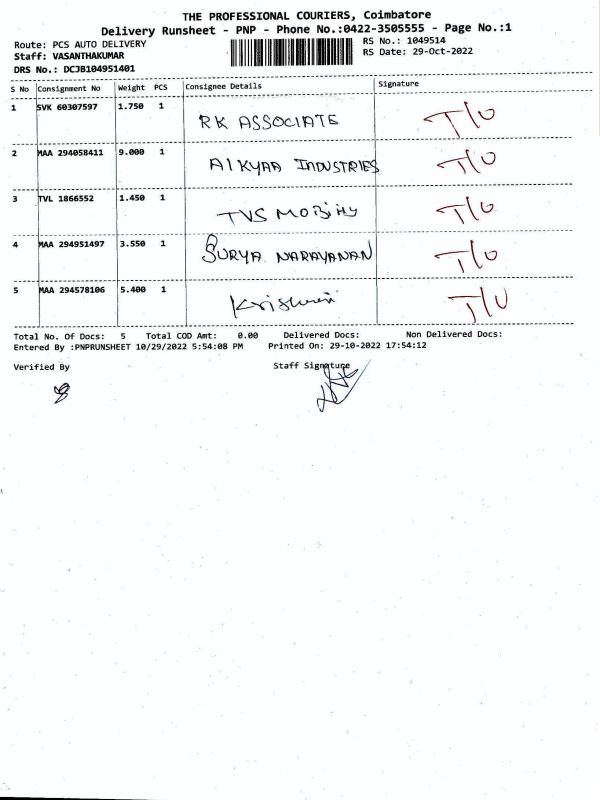 THE PROFESSIONAL COURIERS, Coimbatore
Delivery Runsheet - PNP - Phone No.:0422-3505555 - Page No.:1
Route: PCS AUTO DELIVERY
RS No.: 1049514
Staff: VASANTHAKUMAR
RS Date: 29-Oct-2022
DRS No.: DCJB104951401
S No Consignment No Weight PCS Consignee Details Signature
1 SVK 60307597 1.750 1 RK ASSOCIATE T/U
2 MAA 294058411 9.000 1 INDUSTRIES T/U
3 TVL 1866552 1.450 1 TVS MOBility T/U
4 MAA 294951497 3.550 1 SURYA NARAYANAN T/U
5 MAA 294578106 5.400 1 T/U
Total No. Of Docs: 5 Total COD Amt: 0.00 Delivered Docs: Non Delivered Docs:
Entered By :PNPRUNSHEET 10/29/2022 5:54:08 PM Printed On: 29-10-2022 17:54:12
Verified By Staff Signature